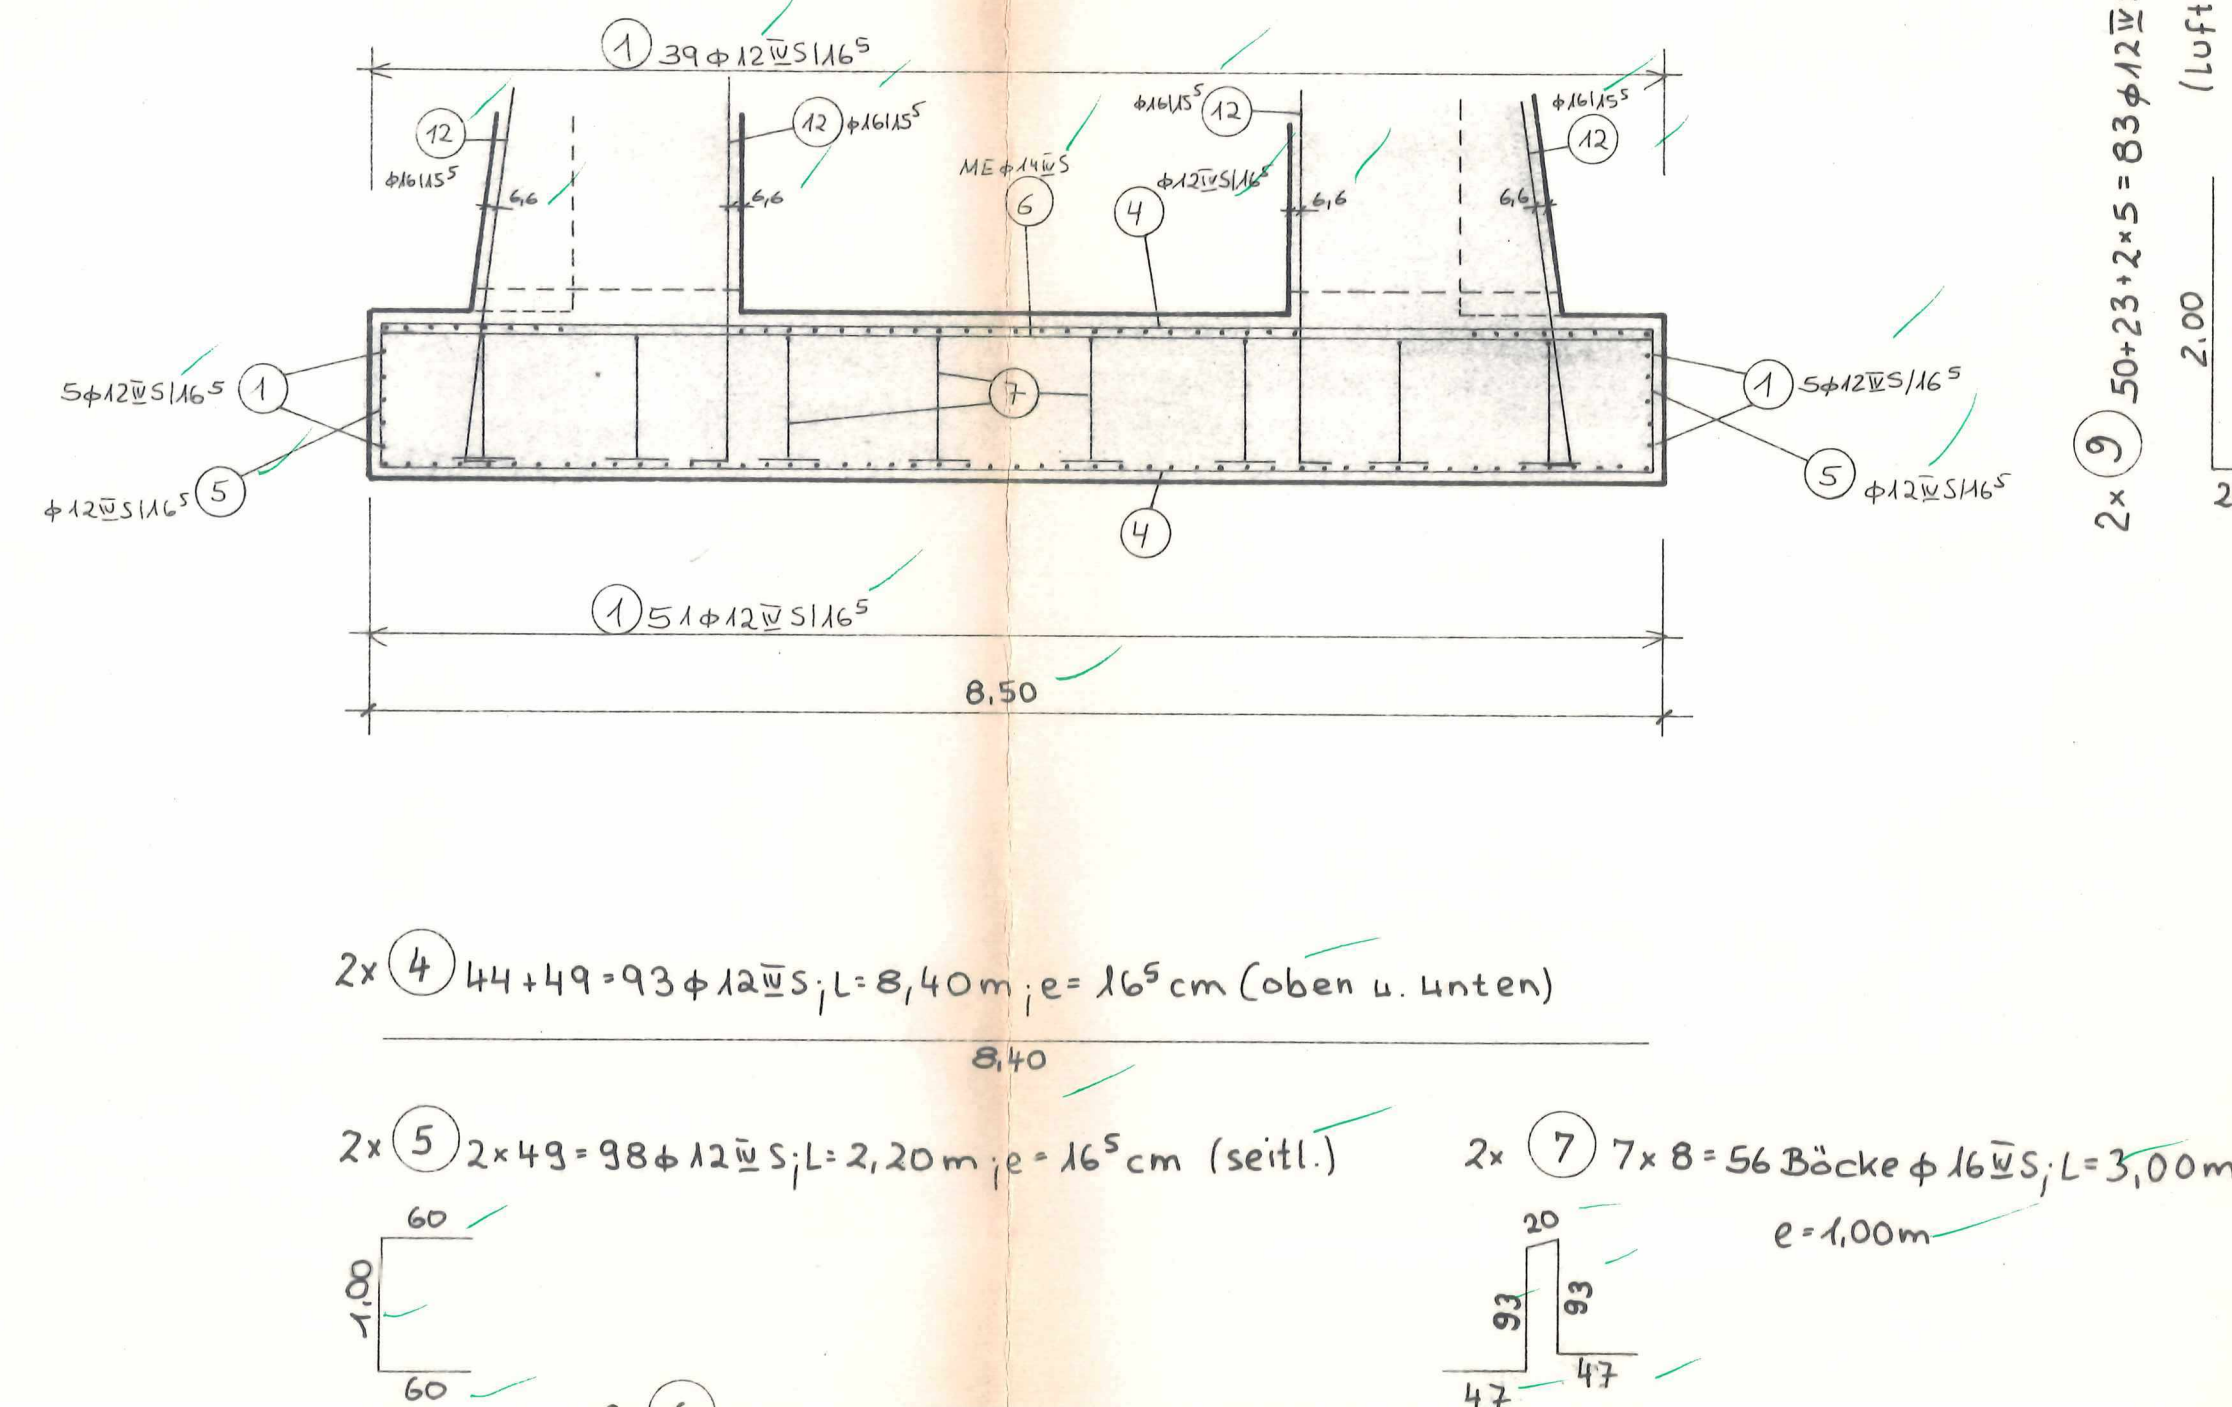 ① 39 ϕ 12 IV S/16⁵
⑫
ϕ16/15⁵
⑫ ϕ16/15⁵
ϕ16/15⁵ ⑫
ϕ16/15⁵
⑫
ME ϕ 14 IV S
⑥
④
ϕ12 IV S/16⁵
6,6
6,6
6,6
6,6
5ϕ12 IV S/16⁵ ①
ϕ12 IV S/16⁵ ⑤
⑦
① 5ϕ12 IV S/16⁵
⑤ ϕ12 IV S/16⁵
④
① 51 ϕ 12 IV S/16⁵
8,50
2x ④ 44+49=93 ϕ 12 IV S; L=8,40m; e= 16⁵ cm (oben u. unten)
8,40
2x ⑤ 2x49=98 ϕ 12 IV S; L=2,20m; e= 16⁵ cm (seitl.)
60
1.00
60
2x ⑦ 7x8=56 Böcke ϕ 16 IV S; L=3,00m
e=1,00m
20
93
93
47
47
2x ⑨ 50+23+2x5=83 ϕ 12 IV
(Luft
2.00
2